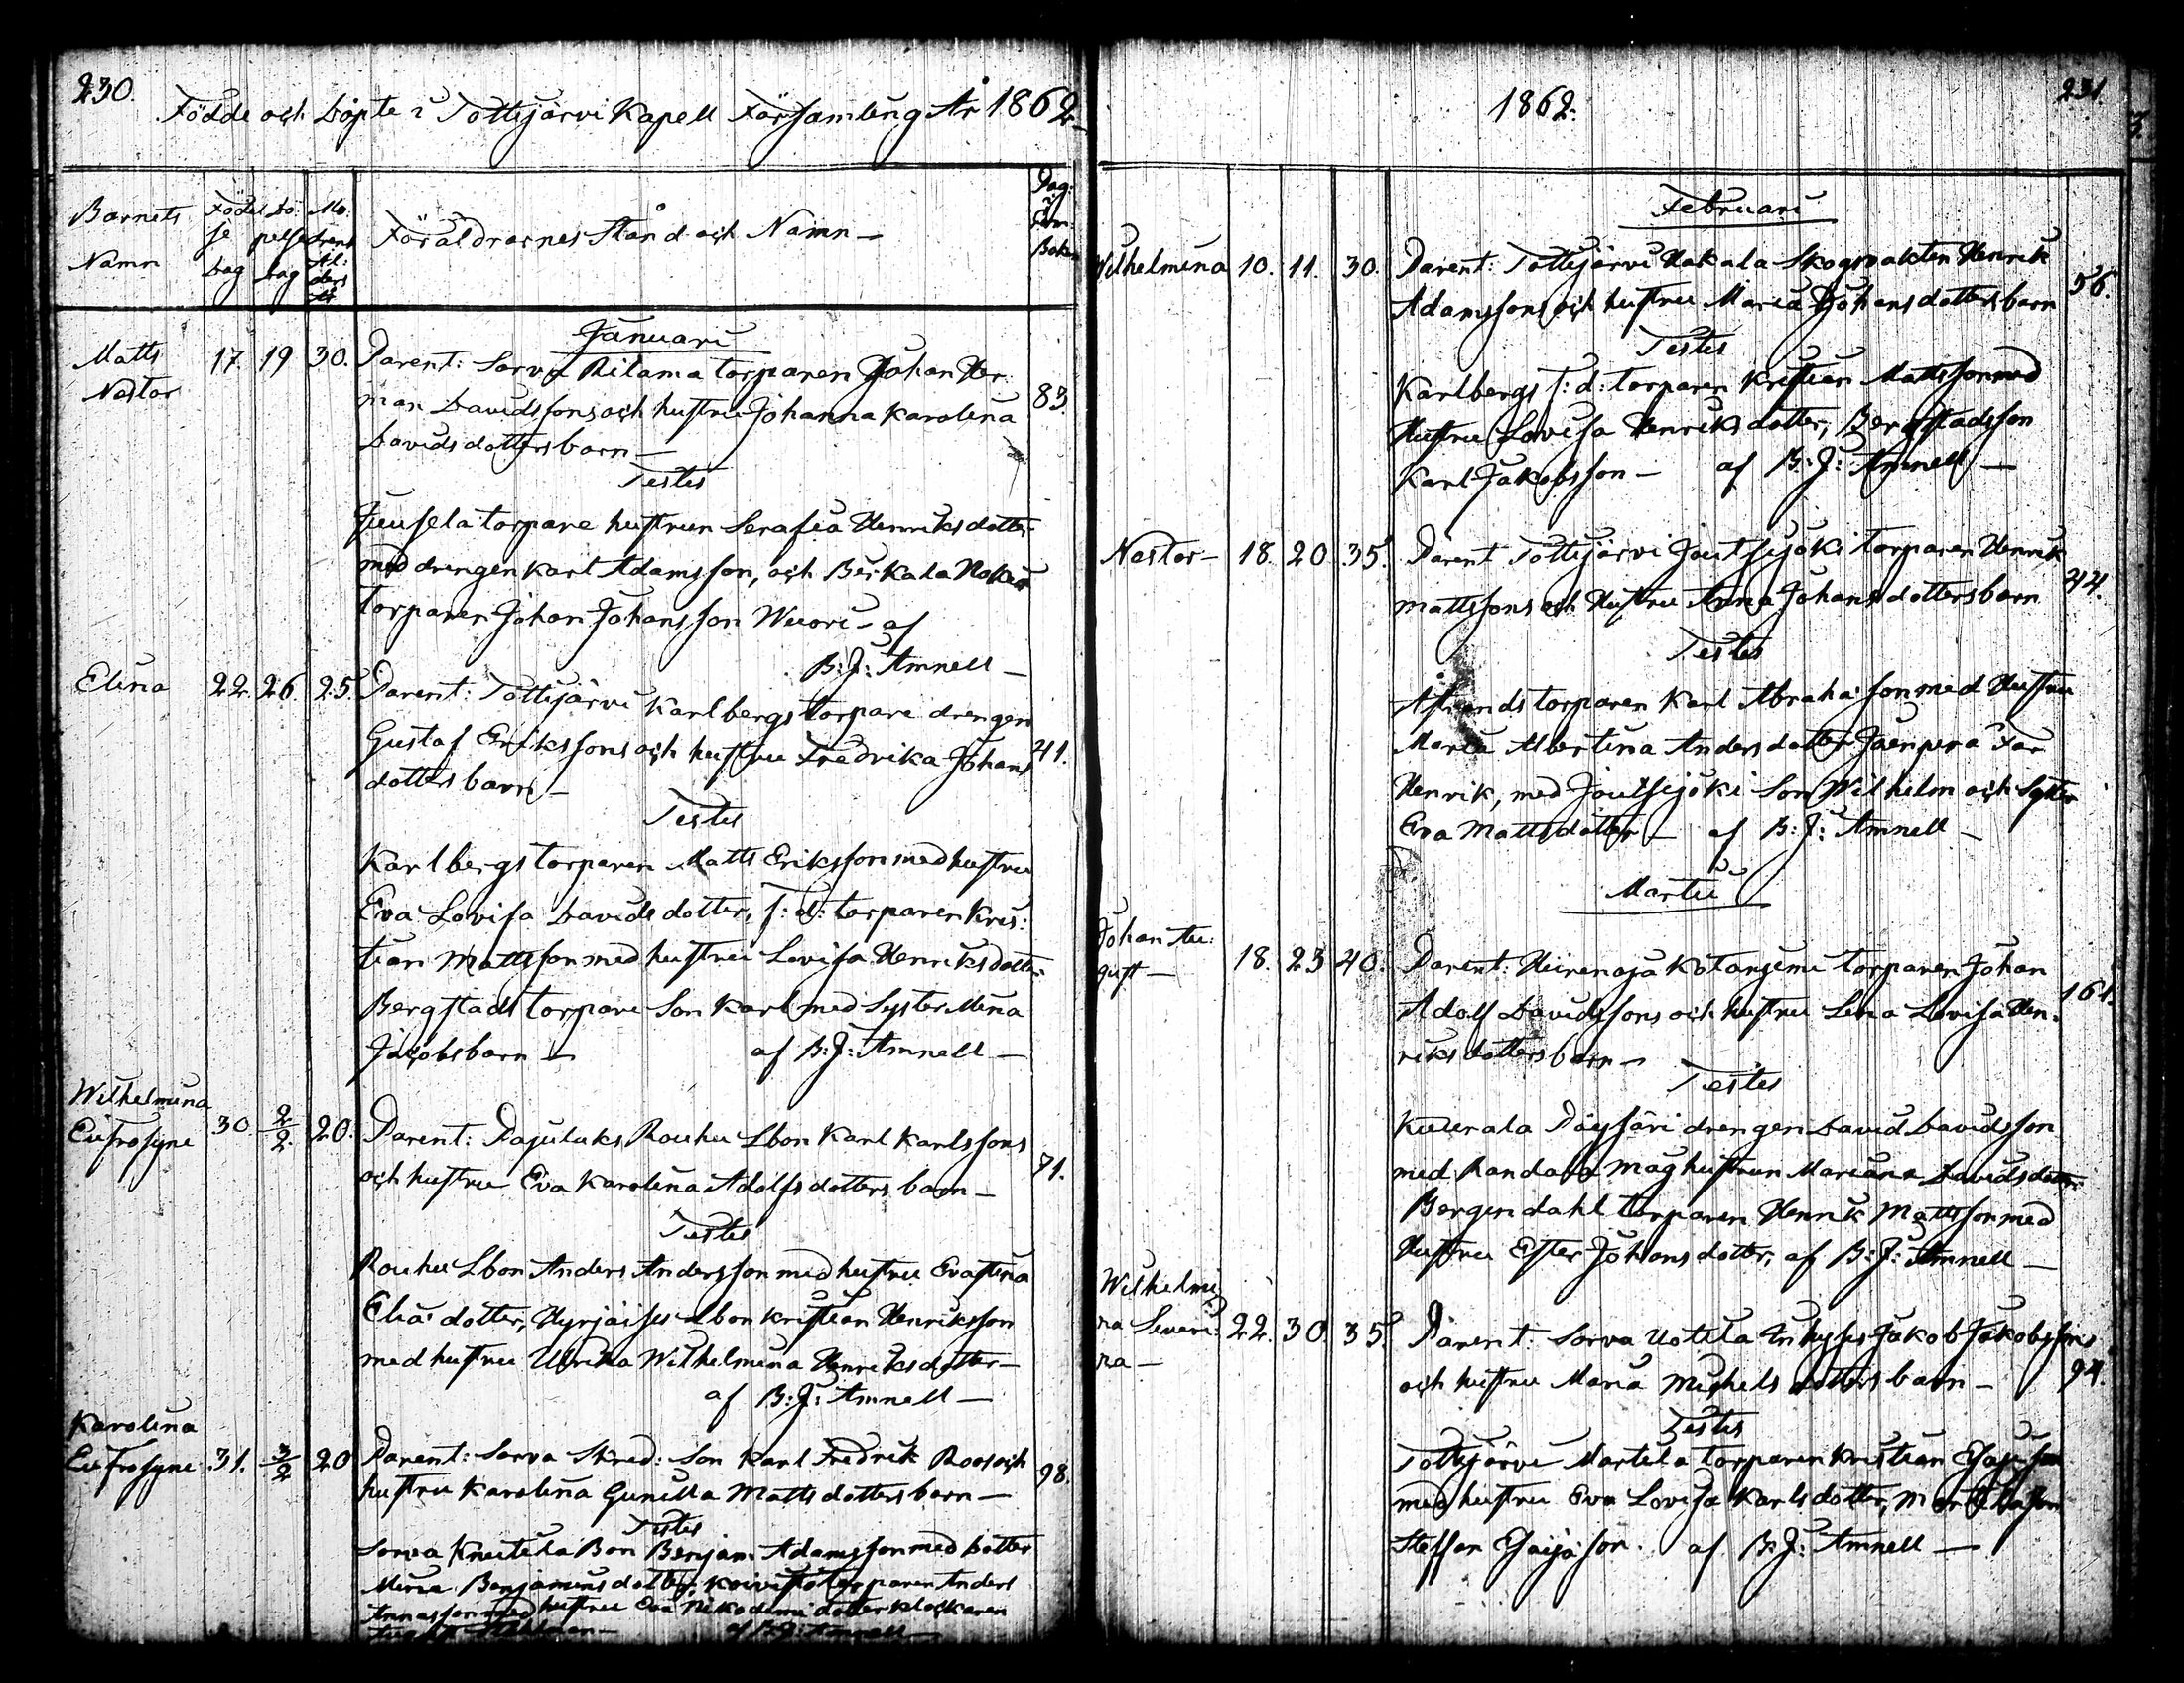 230.
Födde och Döpte i Tottijärvi Kapell Församling År 1862
Barnets Namn
Födelse Dag
Döpelse Dag
Mo:drens Ålders År
Föräldrarnes Stånd och Namn —
Pag: i Com Boken
Januari
Matts Nestor 17. 19 30. Parent: Sorva Ritama torparen Johan Her
man Davidssons och hustru Johanna Karolina 83.
Davidsdotters barn —
Testes
Juusela torpare hustrun Serafia Henriksdotter
med drengen Karl Adamsson, och Birkala Nokia
torparen Johan Johansson Wuori - af
B: J: Amnell —
Elina 22. 26. 25. Parent: Tottijärvi Karlbergs torpare drengen
Gustaf Erikssons och hustru Fredrika Johans 41.
dotters barn —
Testes
Karlbergs torparen Matts Eriksson med hustru
Eva Lovisa Davidsdotter, f: d: torparen Kris:
tian Mattsson med hustru Lovisa Henriksdotter
Bergstads torpare Son Karl med Syster Mina
Jacobsbarn — af B: J: Amnell —
Wilhelmina
Eufrosyne 30. 2/2. 20. Parent: Pajuluks Rouhu Lbon Karl Karlssons
och hustru Eva Karolina Adolfsdotters barn — 71.
Testes
Rouhu Lbon Anders Andersson med hustru Evastina
Eliædotter, Hyrjäises Lbon Kristian Henriksson
med hustru Ulrika Wilhelmina Henriksdotter —
af B: J: Amnell —
Karolina
Eufrosyne 31. 3/2 20 Parent: Sorva Skred: Son Karl Fredrik Roos och
hustru Karolina Gunilla Mattsdotters barn — 98.
Testes
Sorva Knutila Bon Benjam: Adamsson med dotter
Miina Benjaminsdotter, Koivisto torparen Anders
Annasson med hustru Eva Nikodemidotter klockaren
af B: J: Amnell —
1862.
231.
Februari
Wilhelmina 10. 11. 30. Parent: Tottijärvi Hakala Skogvakten Henrik
Adamssons och hustru Maria Johansdotters barn 56.
Testes
Karlbergs f: d: torparen Kristian Mattsson med
Hustru Lovisa Henriksdotter, Bergstadsson
Karl Jakobsson — af B: J: Amnell —
Nestor — 18. 20 35. Parent Tottijärvi Joutsijoki torparen Henrik
Mattssons och Hustru Anna Johansdotters barn 44.
Testes
torparen Karl Abrahasson med Hustru
Maria Albertina Andersdotter Far
Henrik, med Joutsijoki Son Wilhelm och Syster
Eva Mattsdotter — af B: J: Amnell —
Martii
Johan Au:
gust — 18. 23 40. Parent: Hiirenoja Kotaniemi torparen Johan
Adolf Davidssons och hustru Lena Lovisa Hen- 161.
riksdotters barn —
Testes
Kuurala drengen David Davidsson
med Randala måg hustrun Mariana Davidsdotter
Bergendahl torparen Henrik Mattsson med
Hustru Ester Johansdotter, af B: J: Amnell —
Wilhelmi
na Severi:
na — 22. 30. 35. Parent: Sorva Uotila Inhyses Jakob Jakobssons
och hustru Maria Michelsdotters barn — 94.
Testes
Tottijärvi Martila torparen Kristian Esaiæson
med hustru Eva Lovisa Karlsdotter,
Steffan Esaiæson. af B: J: Amnell —